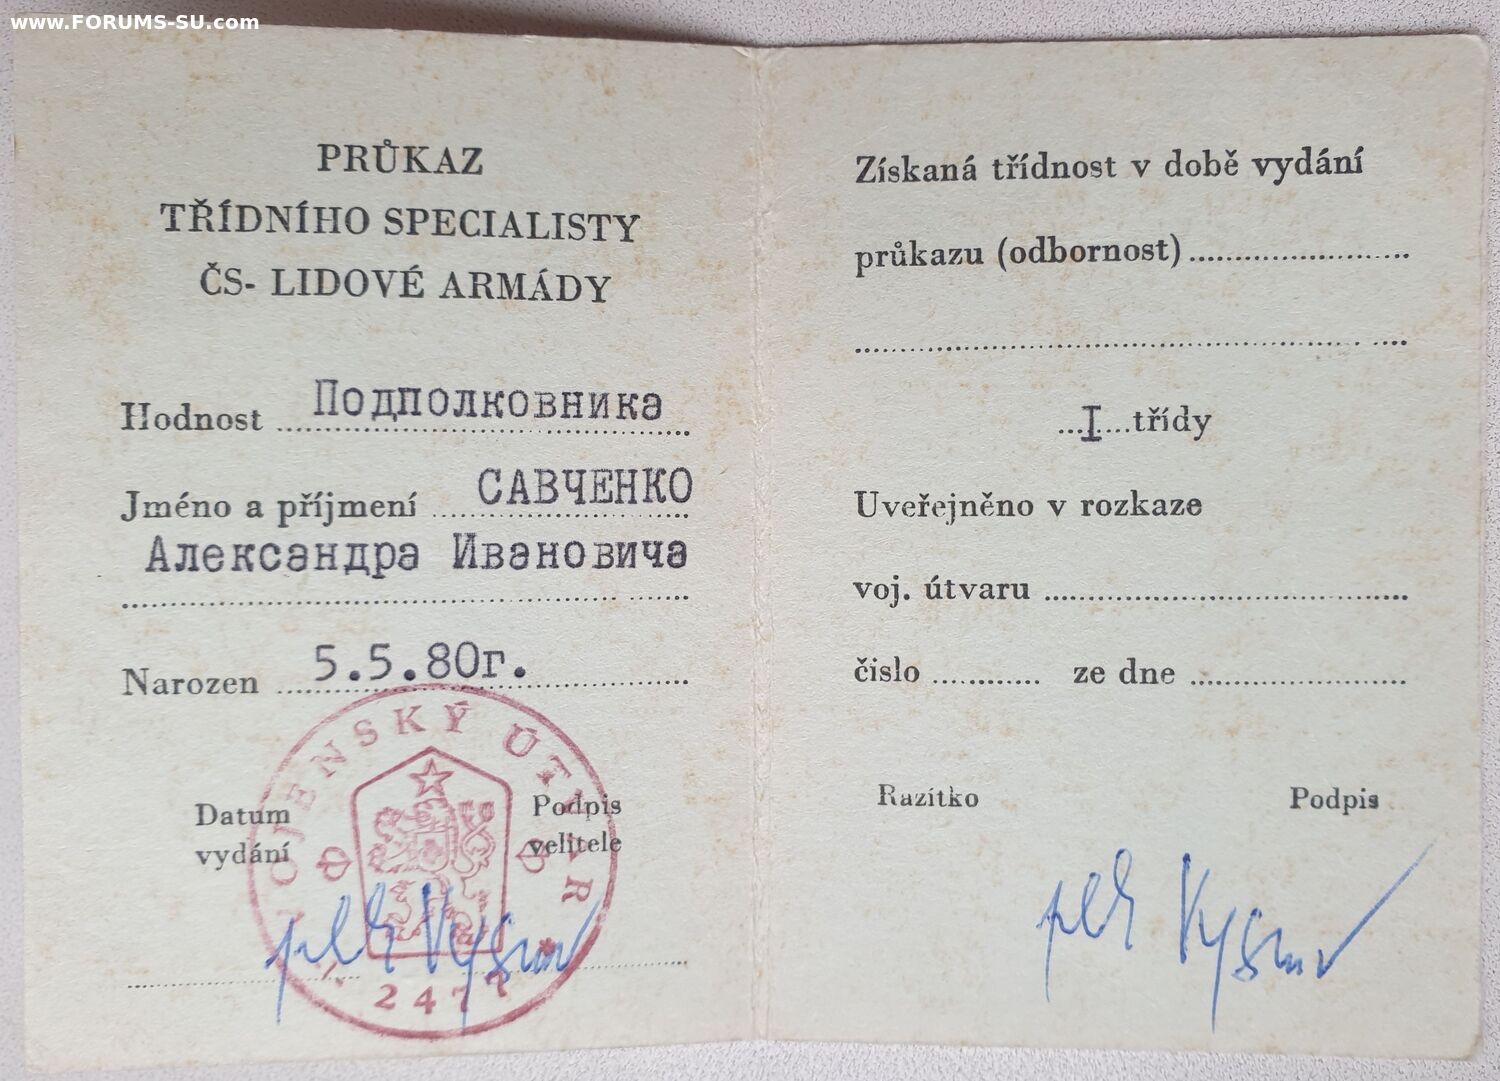 www.FORUMS-SU.com
PRŮKAZ
TŘÍDNÍHO SPECIALISTY
ČS- LIDOVÉ ARMÁDY
Hodnost Подполковника
Jméno a příjmení САВЧЕНКО
Александра Ивановича
Narozen 5.5.80г.
VOJENSKÝ ÚTVAR
Datum
vydání
Podpis
velitele
Získaná třídnost v době vydání
průkazu (odbornost)
I třídy
Uveřejněno v rozkaze
voj. útvaru
číslo ze dne
Razítko Podpis